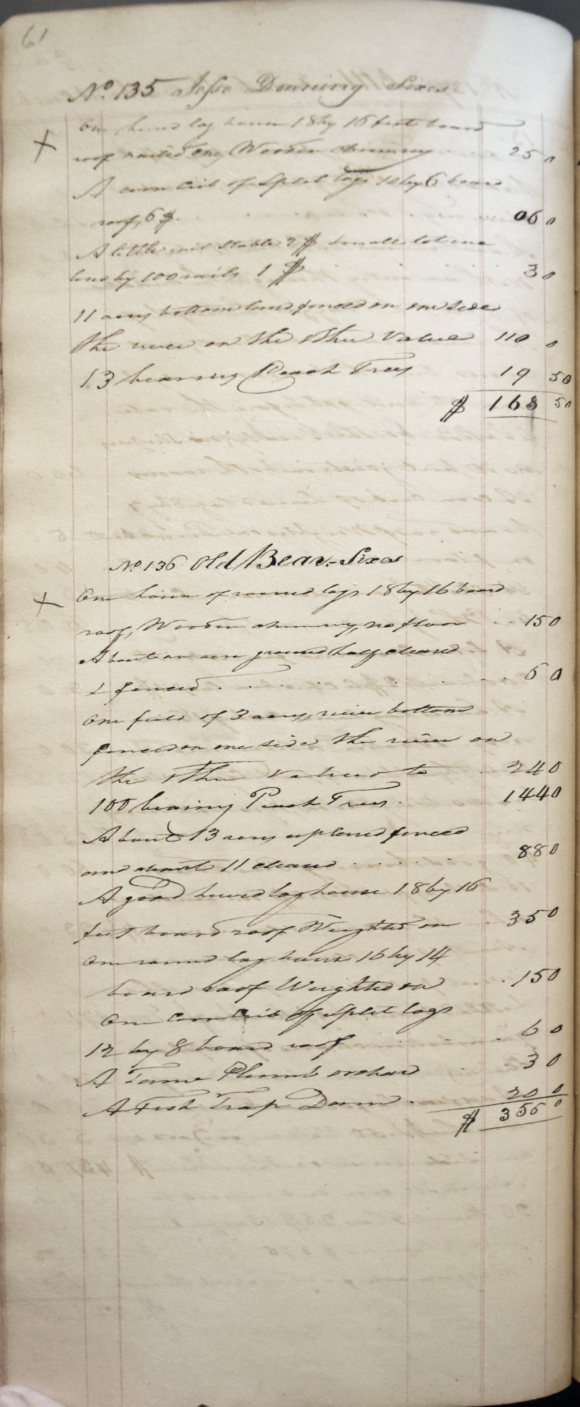 61
No 135 Jesse Downing Sixes
One hewd log house 18 by 16 feet board
roof nailed on, Wooden chimney 25 0
A corn Crib of Split logs 12 by 6 board
roof, 6 $ 06 0
A little
by 100 rails 1 $ 3 0
11 acres bottom land fenced on one side
the river on the other Value 110 0
13 bearing Peach Trees 19 50
$ 163 50
No 136 Old Bear - Sixes
One house of round logs 18 by 16 board
roof, Wooden chimney, no floor 15 0
About an acre ground half cleared
& fenced 6 0
One field of 3 acres, river bottom
fenced on one side the river on
the other Valued to 24 0
100 bearing Peach Trees. 144 0
About 13 acres upland fenced
and about 11 cleared 88 0
A good hewed log house 18 by 16
feet board roof Weighted on 35 0
One round log house 16 by 14
board roof Weighted on 15 0
One Corn Crib of Split logs
12 by 8 board roof 6 0
A Plumb orchard 3 0
A Fish Trap Dam 20 0
$ 355 0